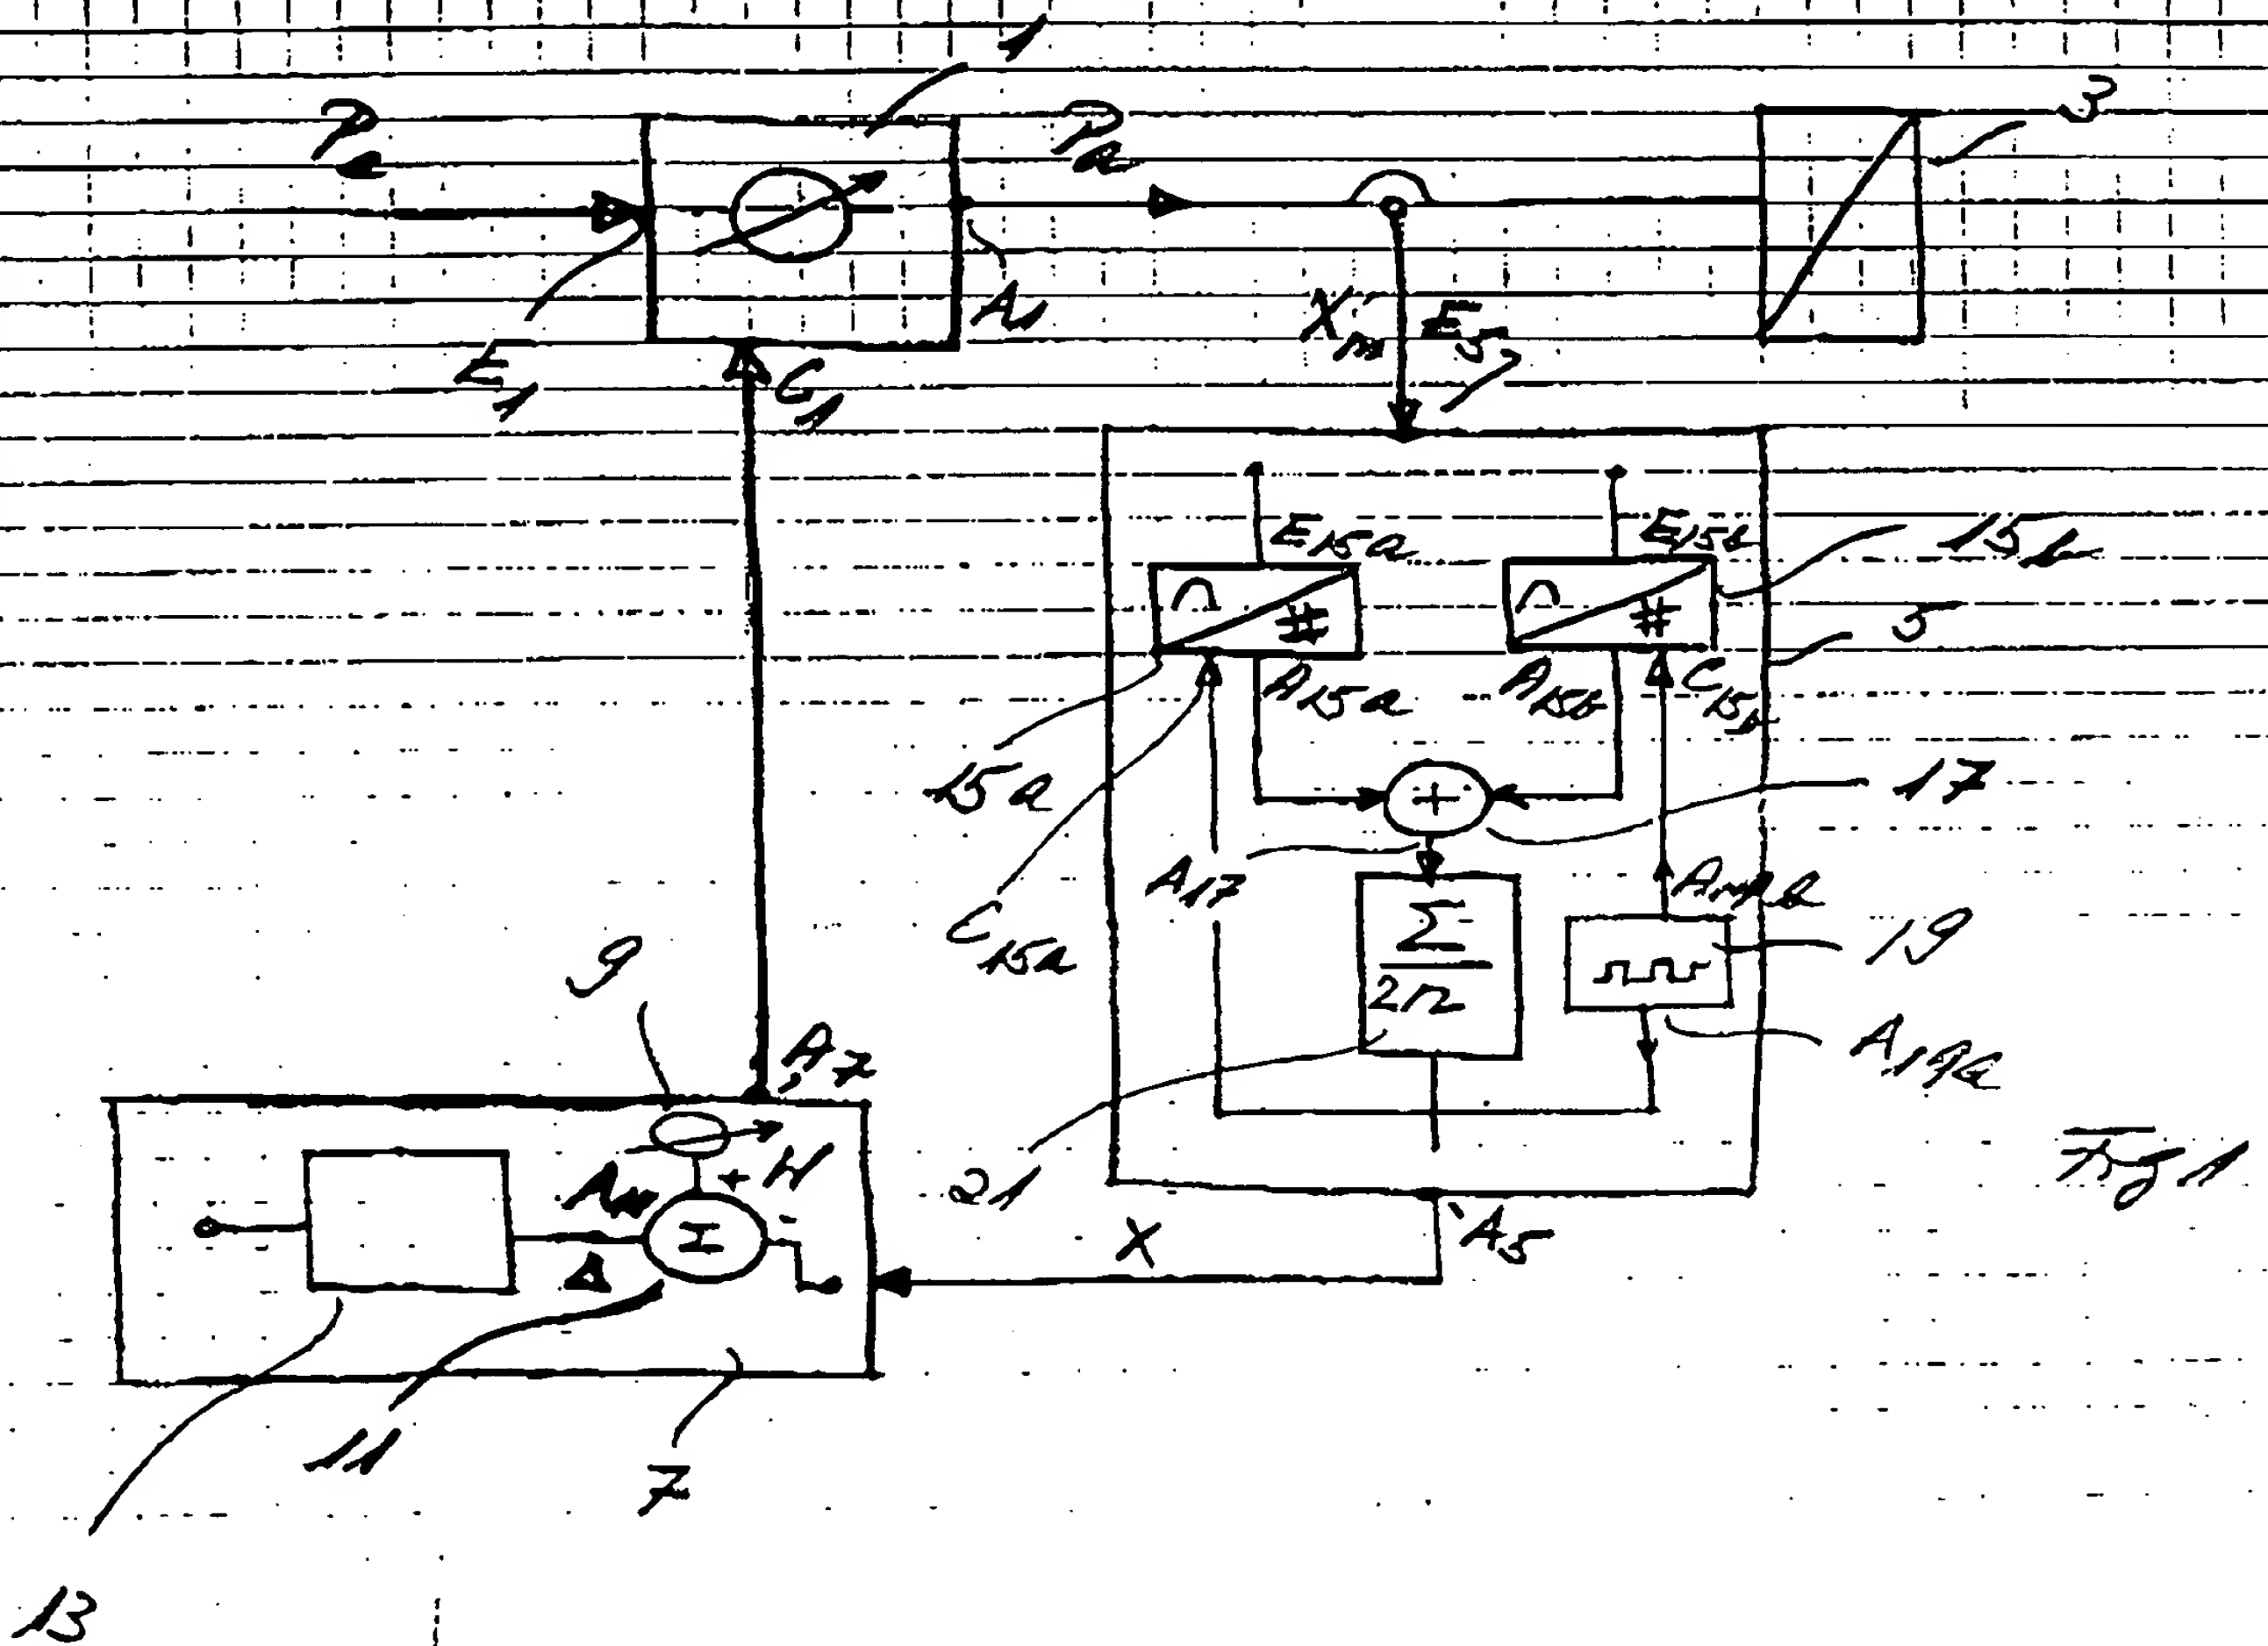 1
3
P
P a
A1
E1
G1
X m
E5
E15a
E15b
15b
5
A15a
A15b
C15b
15a
+
17
A17
C15a
Σ
2n
19
A19a
9
A7
+ W
-
Δ
I
21
X
A5
Fig 1
11
7
13